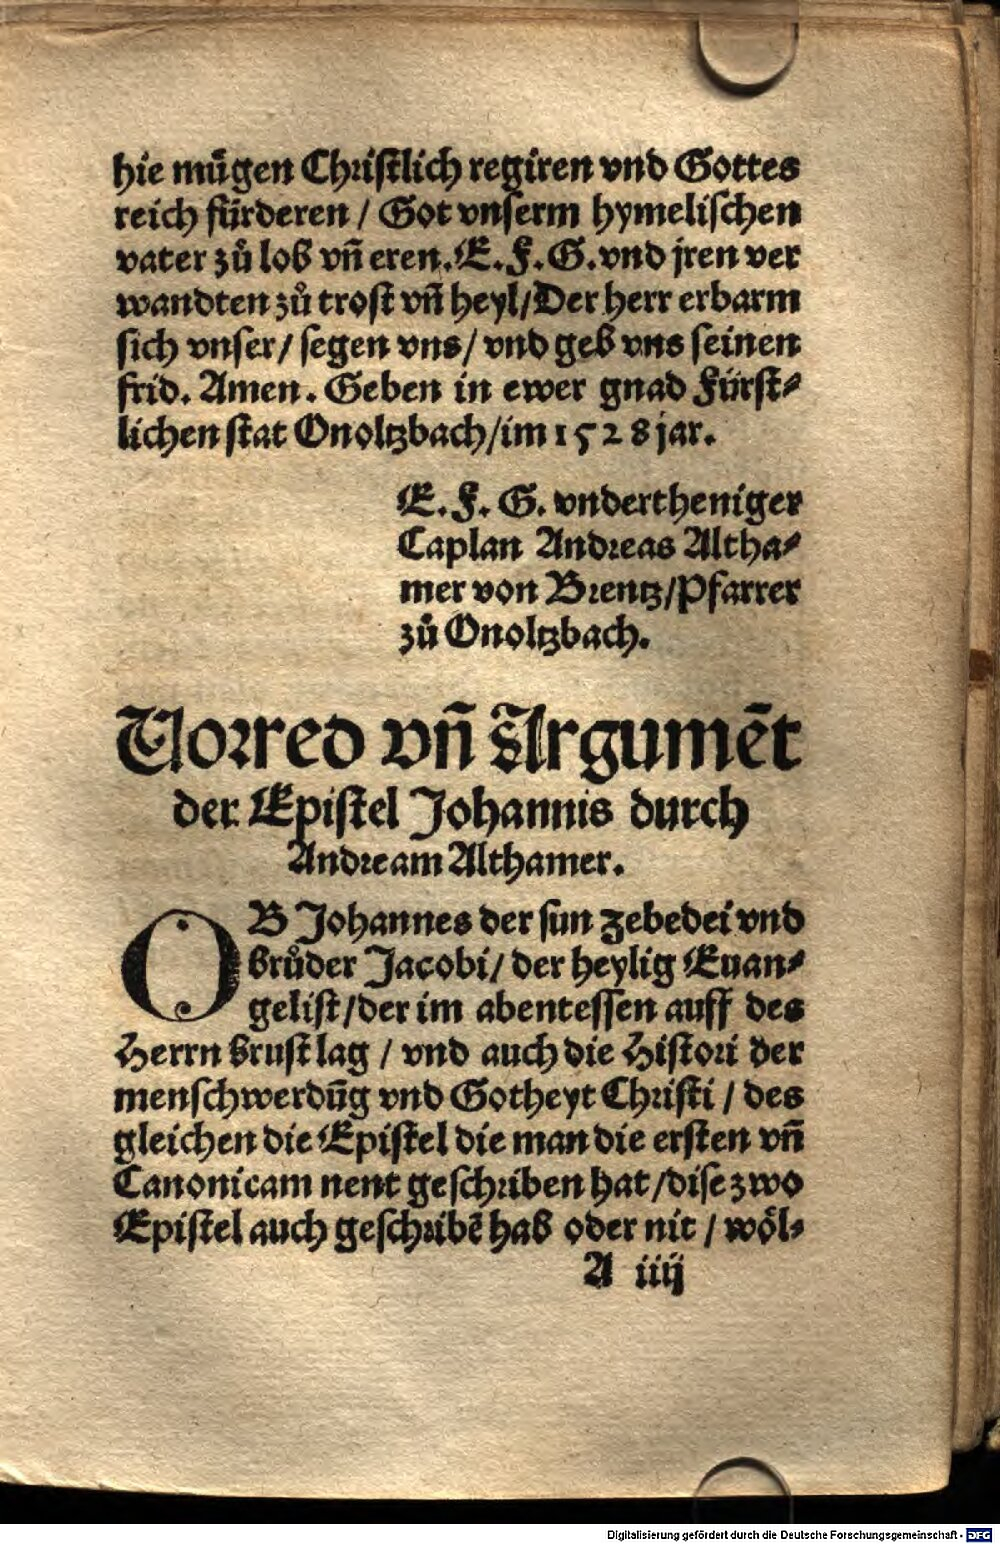 hie mügen Christlich regiren vnd Gottes
reich fürderen / Got vnserm hymelischen
vater zů lob vñ eren. E. F. G. vnd jren ver
wandten zů trost vñ heyl / Der herr erbarm
sich vnser / segen vns / vnd geb vns seinen
frid. Amen. Geben in ewer gnad Fürst⸗
lichen stat Onoltzbach / im 1528 jar.
E. F. G. vndertheniger
Caplan Andreas Altha⸗
mer von Brentz / Pfarrer
zů Onoltzbach.
Vorred vñ Argumēt
der Epistel Johannis durch
Andream Althamer.
OB Johannes der sun Zebedei vnd
brůder Jacobi / der heylig Euan⸗
gelist / der im abentessen auff des
Herrn brust lag / vnd auch die Histori der
menschwerdūg vnd Gotheyt Christi / des
gleichen die Epistel die man die ersten vñ
Canonicam nent geschriben hat / dise zwo
Epistel auch geschribē hab oder nit / wöl⸗
A iiij
Digitalisierung gefördert durch die Deutsche Forschungsgemeinschaft - DFG